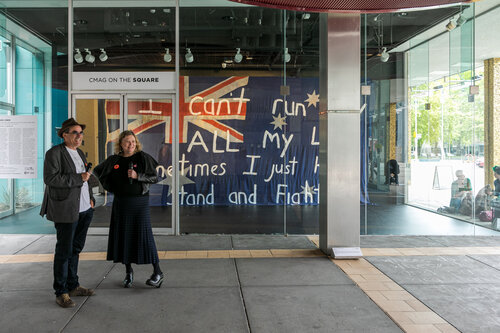 CMAG ON THE SQUARE
I can't run
ALL my L
times I just h
Stand and Figh